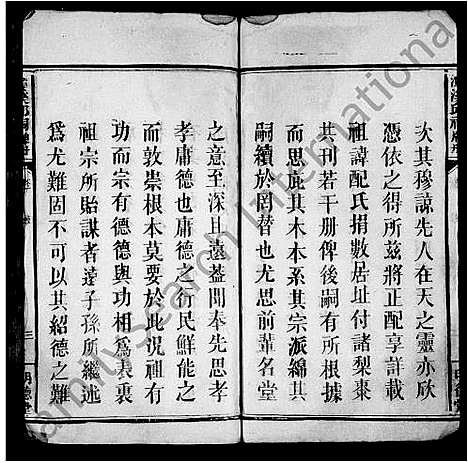 次其穆諒先人在天之靈亦欣
憑依之得所茲將正配享詳載
祖諱配氏捐數居址付諸梨棗
共刊若干册俾後嗣有所根據
而思庇其木本系其宗派綿其
嗣續於罔替也尤思前輩名堂
之意至深且遠葢聞奉先思孝
孝庸德也庸德之行民鮮能之
而敦崇根本莫要於此況祖有
功而宗有德德與功相爲表裏
祖宗所貽謀者遠子孫所繼述
爲尤難固不可以其紹德之難
三
明德堂
FamilySearch International